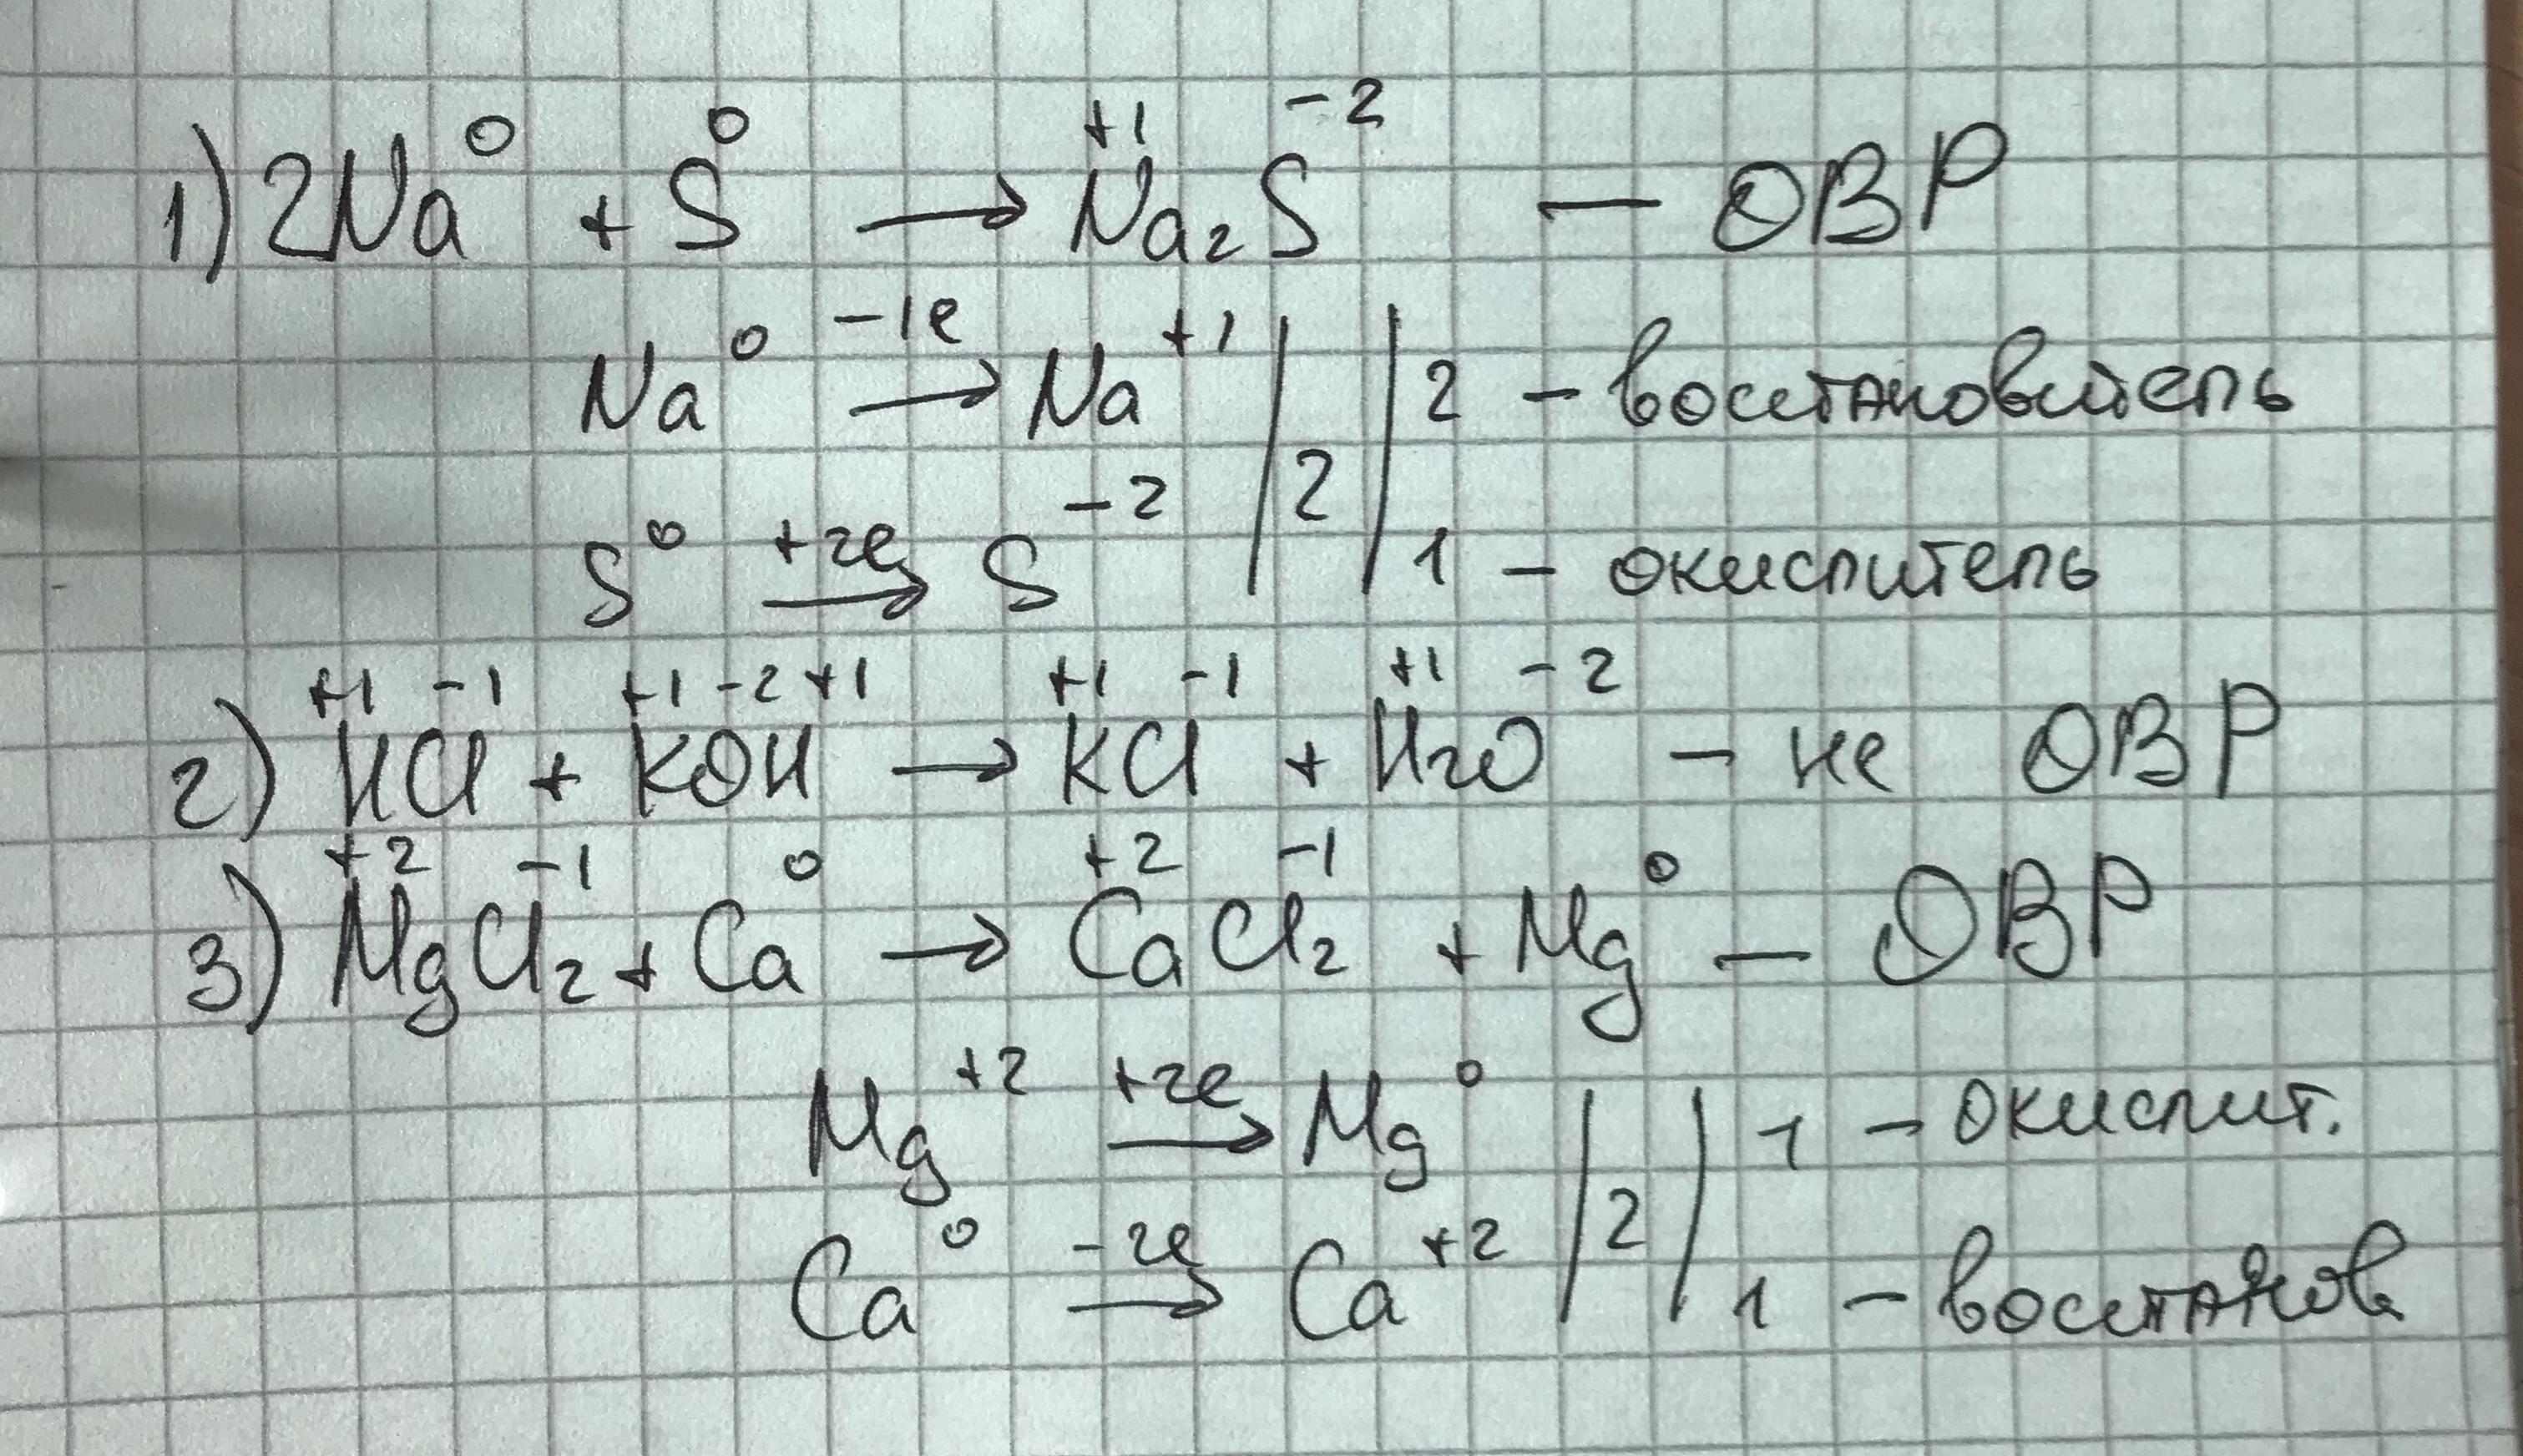 1) 2Na⁰ + S⁰ → Na₂⁺¹S⁻² — ОВР
Na⁰ –1e → Na⁺¹ | | 2 – восстановитель
| 2 |
S⁰ +2e → S⁻² | | 1 – окислитель
2) H⁺¹Cl⁻¹ + K⁺¹O⁻²H⁺¹ → K⁺¹Cl⁻¹ + H₂⁺¹O⁻² – не ОВР
3) Mg⁺²Cl₂⁻¹ + Ca⁰ → Ca⁺²Cl₂⁻¹ + Mg⁰ — ОВР
Mg⁺² +2e → Mg⁰ | | 1 – окислит.
| 2 |
Ca⁰ –2e → Ca⁺² | | 1 – восстанов